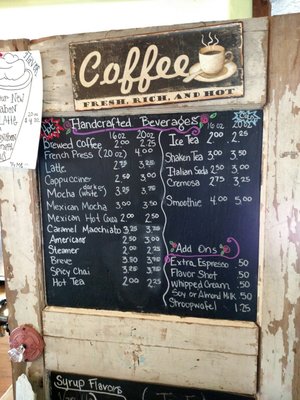 Coffee
FRESH, RICH, AND HOT
Handcrafted Beverages
16oz 20oz
Brewed Coffee 2.00 2.25
French Press (20oz) 4.00
Latte
Cappuccino
Mocha (dark or white) 3.25 3.75
Mexican Mocha 3.00 3.50
Mexican Hot Cocoa 2.00 2.50
Caramel Macchiato 3.25 3.75
Americano 2.50
Steamer 2.00 2.25
Breve
Spicy Chai
Hot Tea 2.00 2.25
16oz 20oz
Ice Tea 2.00 2.25
Shaken Tea 3.00 3.50
Italian Soda 2.50 3.00
Cremosa 2.75 3.25
Smoothie 4.00 5.00
Add Ons
Extra Espresso .50
Flavor Shot .50
Whipped Cream .50
Soy or Almond Milk .50
Stroopwafel 1.25
Syrup Flavors